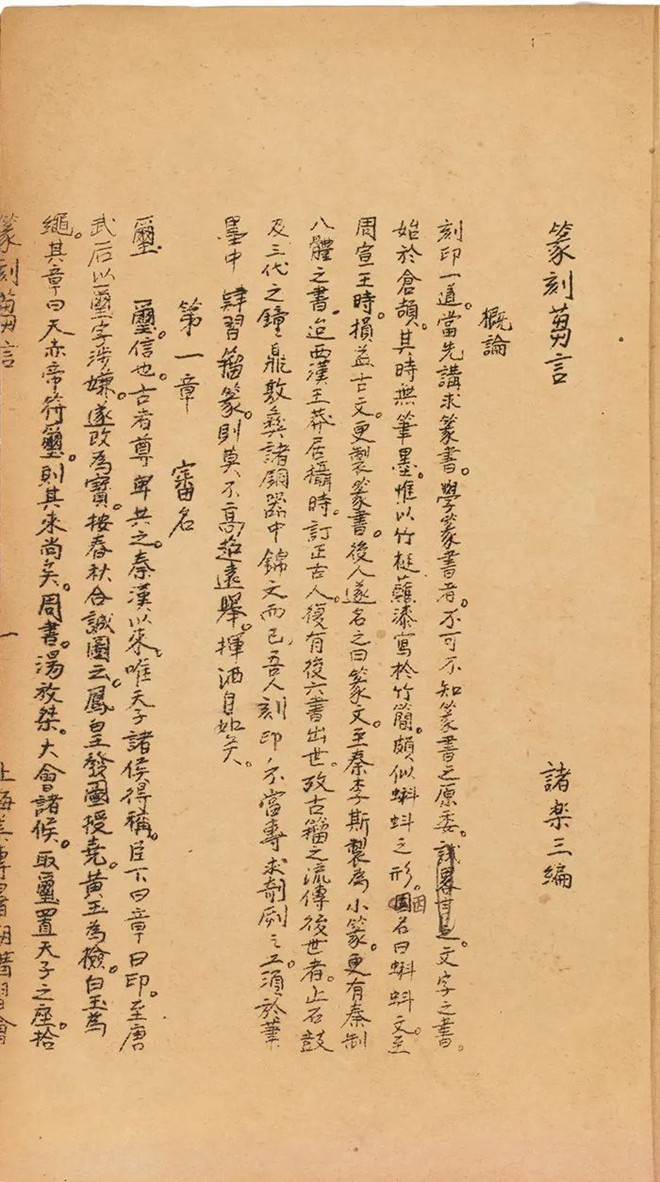 篆刻蒭言
諸樂三編
概論
刻印一道。當先講求篆書。學篆書者。不可不知篆書之原委。文字之書。
始於倉頡。其時無筆墨。惟以竹梃蘸漆寫於竹簡。頗似蝌蚪之形。因名曰蝌蚪文。至
周宣王時。損益古文。更製篆書。後人遂名之曰篆文。至秦李斯製為小篆。更有秦制
八體之書。迨西漢王莽居攝時。訂正古人。復有後六書出世。攷古籀之流傳後世者。止石鼓
及三代之鐘鼎敦彝諸銅器中銘文而已。吾人刻印。不當專求剞劂之工。須於筆
墨中肄習籀篆。則莫不高超遠舉。揮洒自如矣。
第一章 審名
璽 璽。信也。古者尊卑共之。秦漢以來。唯天子諸侯得稱。臣下曰章曰印。至唐
武后以璽字涉嫌。遂改為寶。按春秋合誠圖云。鳳皇發圖授堯。黃玉為檢。白玉為
繩。其章曰天赤帝符璽。則其來尚矣。周書。湯放桀。大會諸侯。取璽置天子之座。拾
篆刻蒭言
一